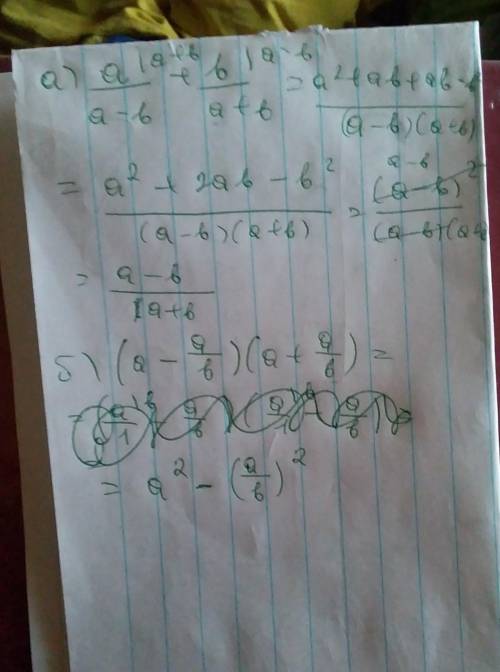 а) a/(a-b) |a+b + b/(a+b) |a-b = (a²+ab+ab-b
/((a-b)(a+b)
= (a²+2ab-b²)/((a-b)(a+b)) = (a-b)²/((a-b)(a+
a-b
= (a-b)/(a+b)
б) (a - a/b)(a + a/b) =
= a² - (a/b)²